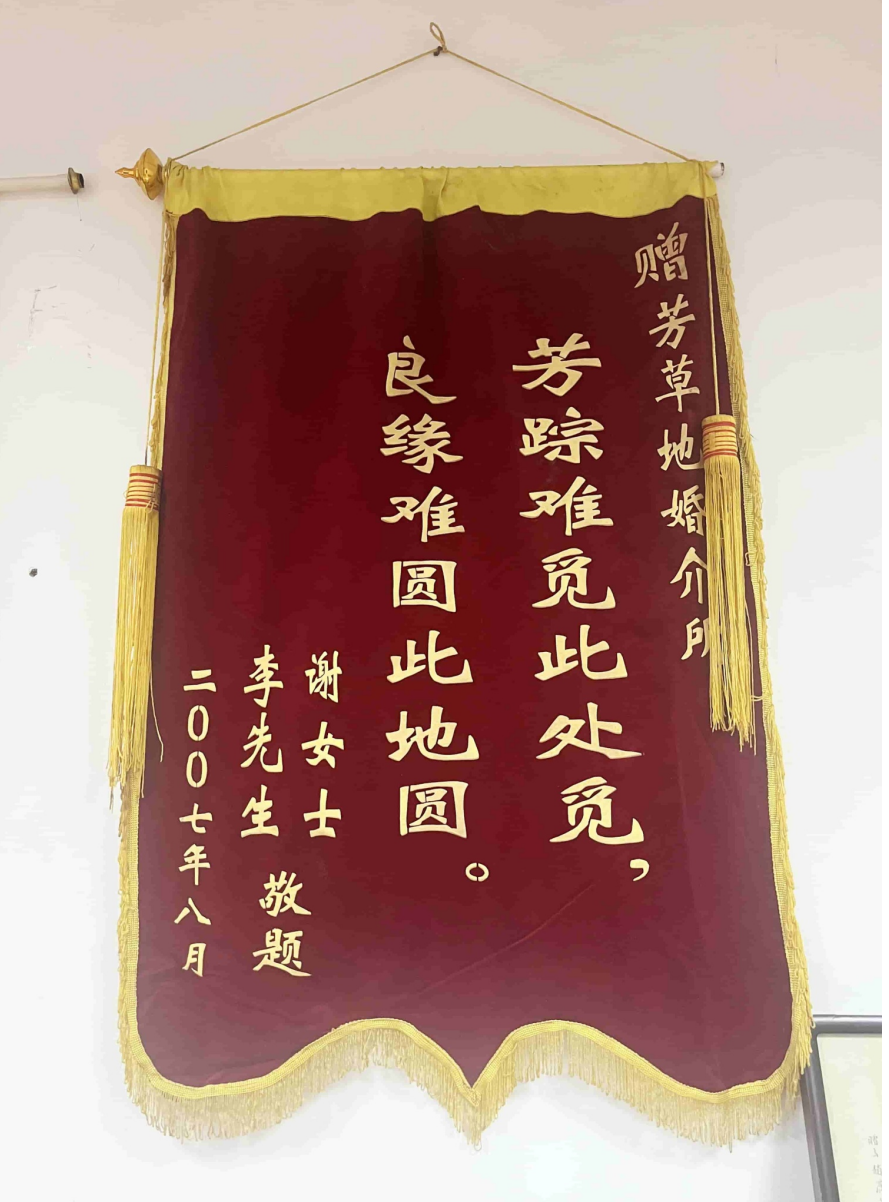 赠芳草地婚介所
芳踪难觅此处觅，
良缘难圆此地圆。
谢女士
李先生
敬题
二〇〇七年八月